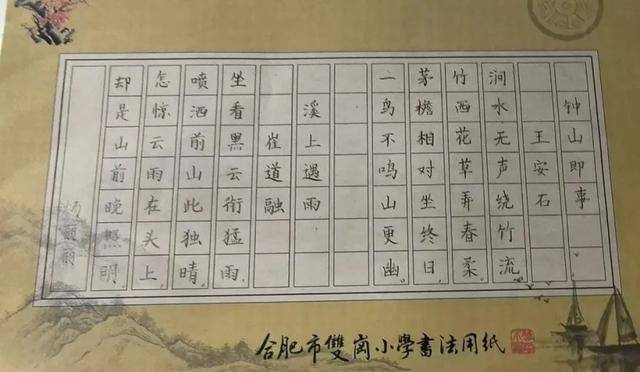 钟山即事
王安石
涧水无声绕竹流,
竹西花草弄春柔。
茅檐相对坐终日,
一鸟不鸣山更幽。
溪上遇雨
崔道融
坐看黑云衔猛雨,
喷洒前山此独晴。
怎惊云雨在头上,
却是山前晚照明。
合肥市雙崗小學書法用紙